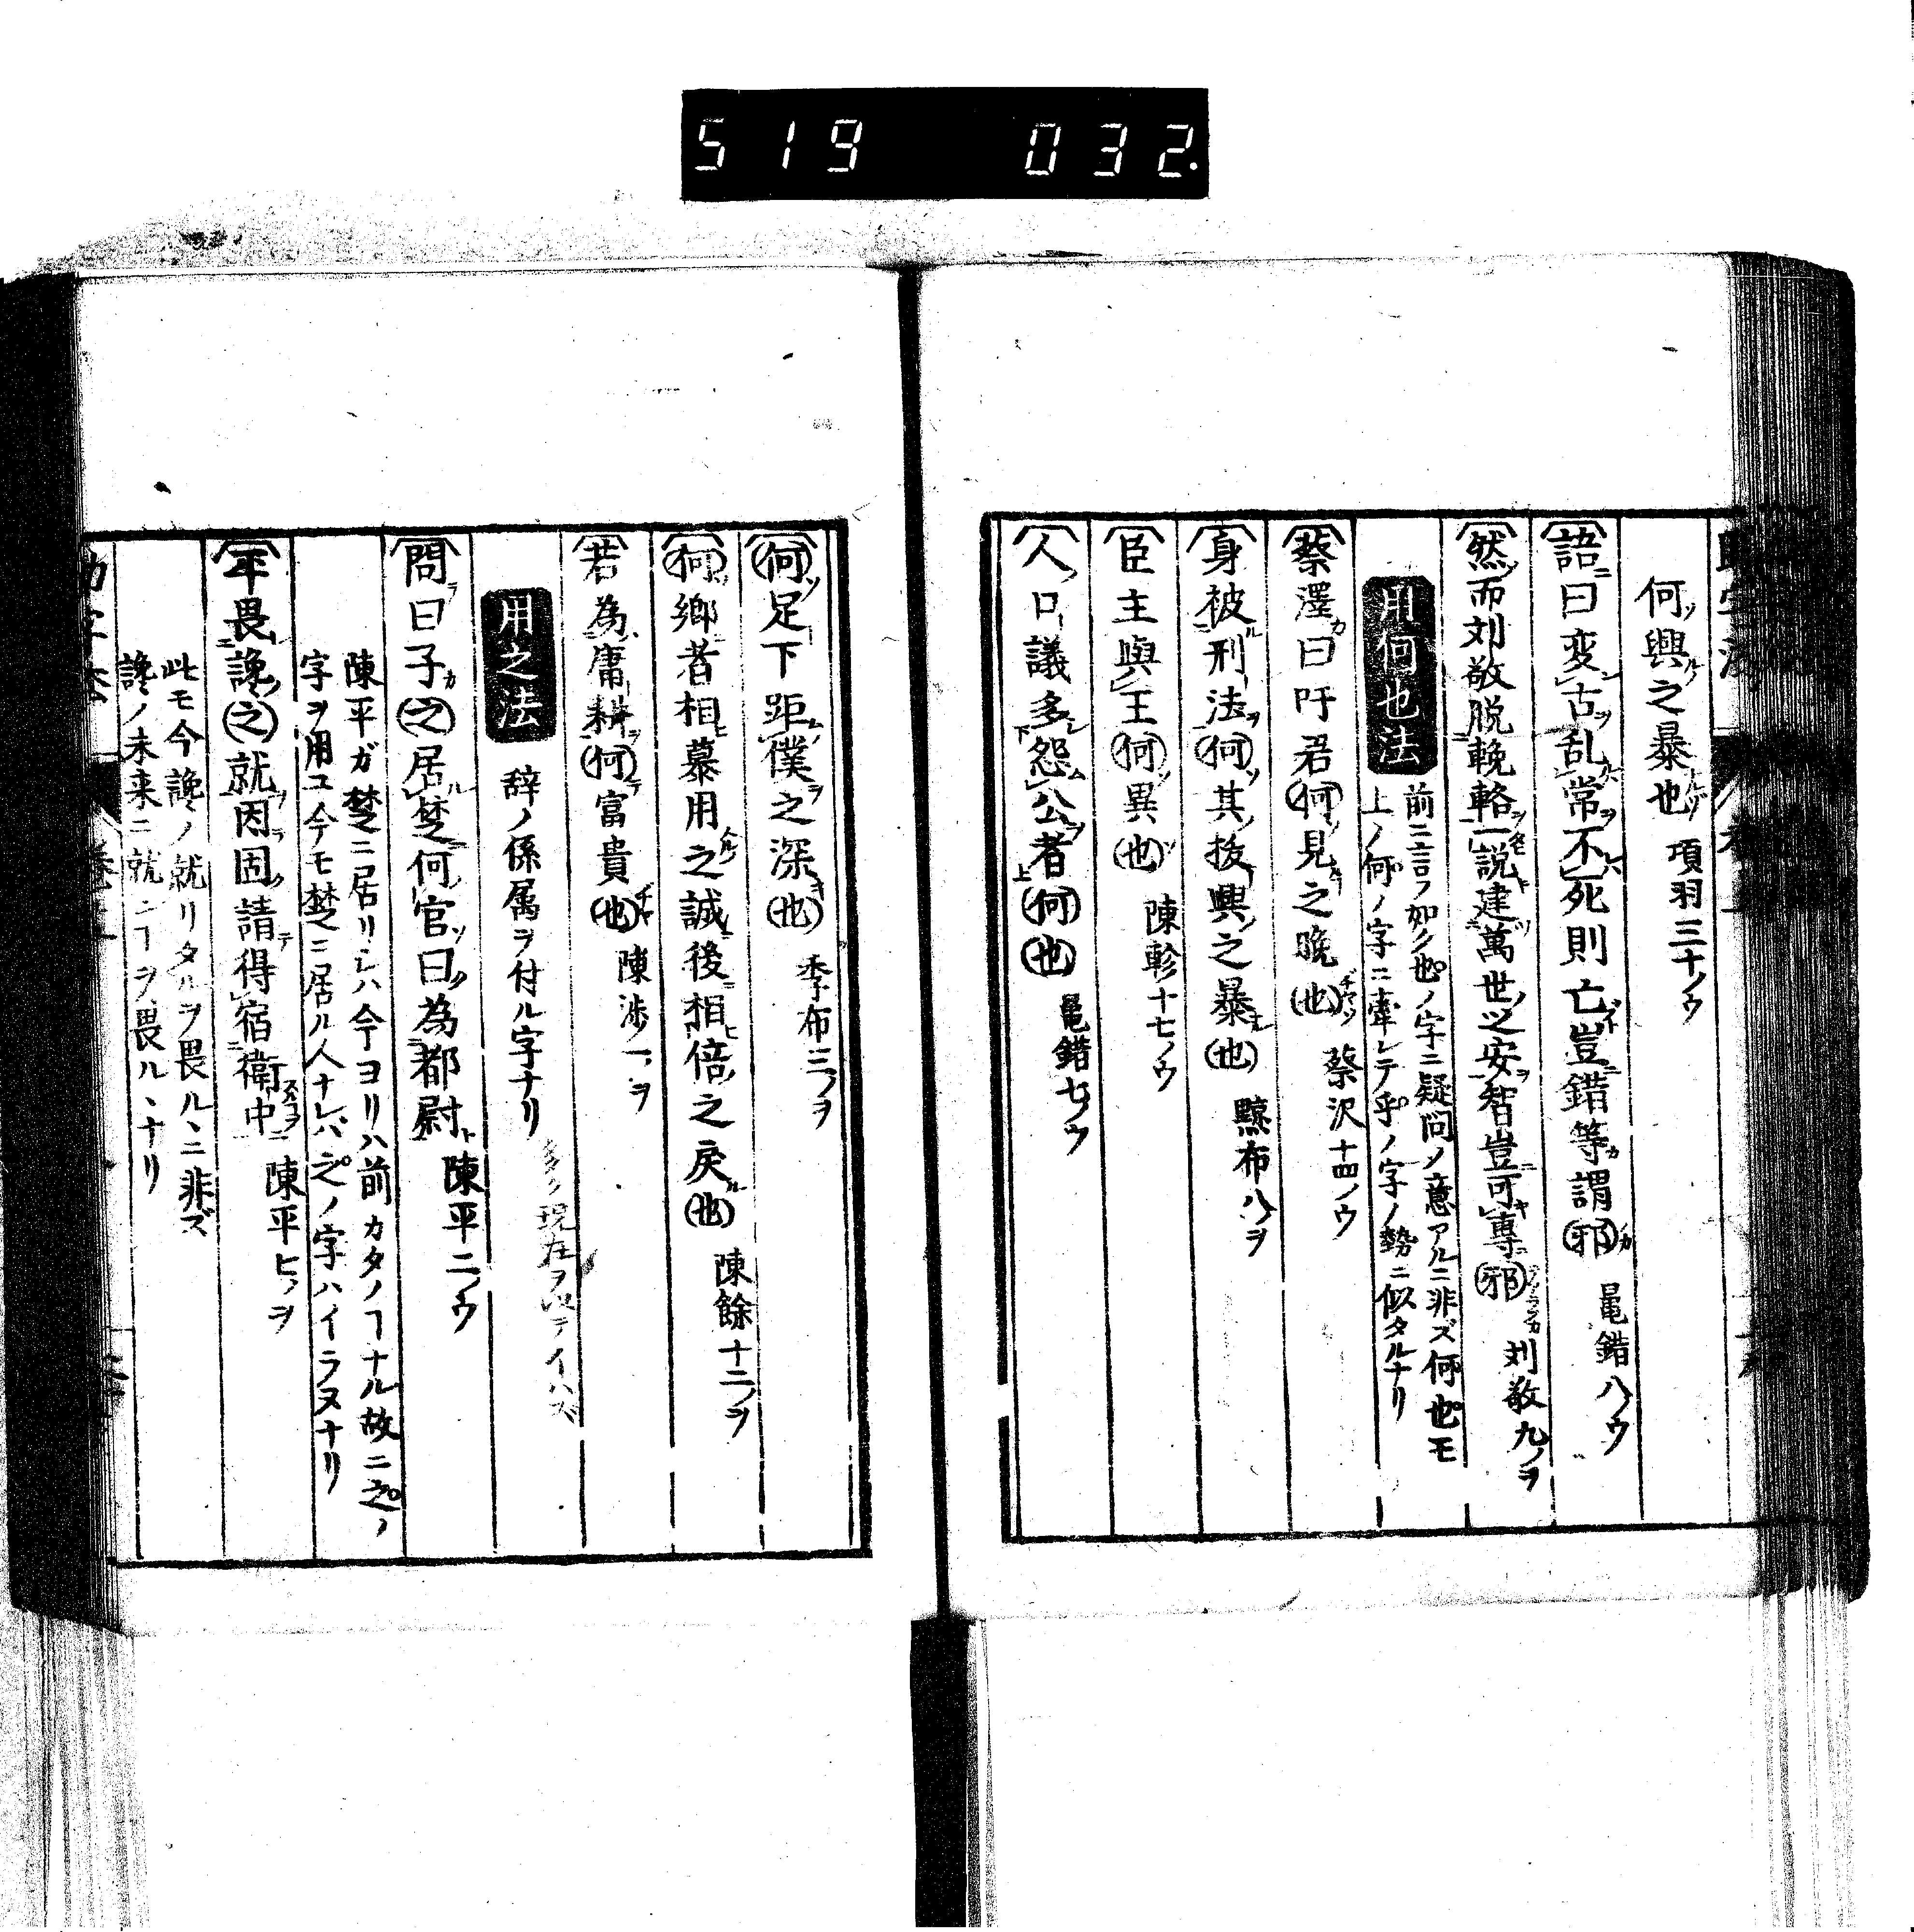 519 032.
何興之暴也 項羽三十ノウ
語曰変古乱常不死則亡豈錯等謂邪 鼂錯八ノウ
然而刘敬脱輓輅一説建萬世之安智豈可專邪 刘敬九ノヲ
用何也法
前ニ言フ如ク也ノ字ニ疑问ノ意アルニ非ズ何也モ
上ノ何ノ字ニ牽レテ乎ノ字ノ勢ニ似タルナリ
蔡澤曰吁君何見之晚也 蔡沢十四ノウ
身被刑法何其抜興之暴也 黥布八ノヲ
臣主與王何異也 陳軫十七ノウ
人口議多怨公者何也 鼂錯七ノウ
何足下距僕之深也 季布三ノヲ
何鄉者相慕用之誠後相倍之戾也 陳餘十二ノヲ
若為庸耕何富貴也 陳渉一ノヲ
用之法 辞ノ係属ヲ付ル字ナリ
問曰子之居楚何官曰為都尉 陳平二ノウ
陳平ガ楚ニ居リシハ今ヨリハ前カタノヿナル故ニ之ノ
字ヲ用ユ今モ楚ニ居ル人ナレバ之ノ字ハイラヌナリ
平畏讒之就因固請得宿衛中 陳平ヒノヲ
此モ今讒ノ就リタルヲ畏ルヽニ非ズ
讒ノ未来ニ就ンヿヲ畏ルヽナリ